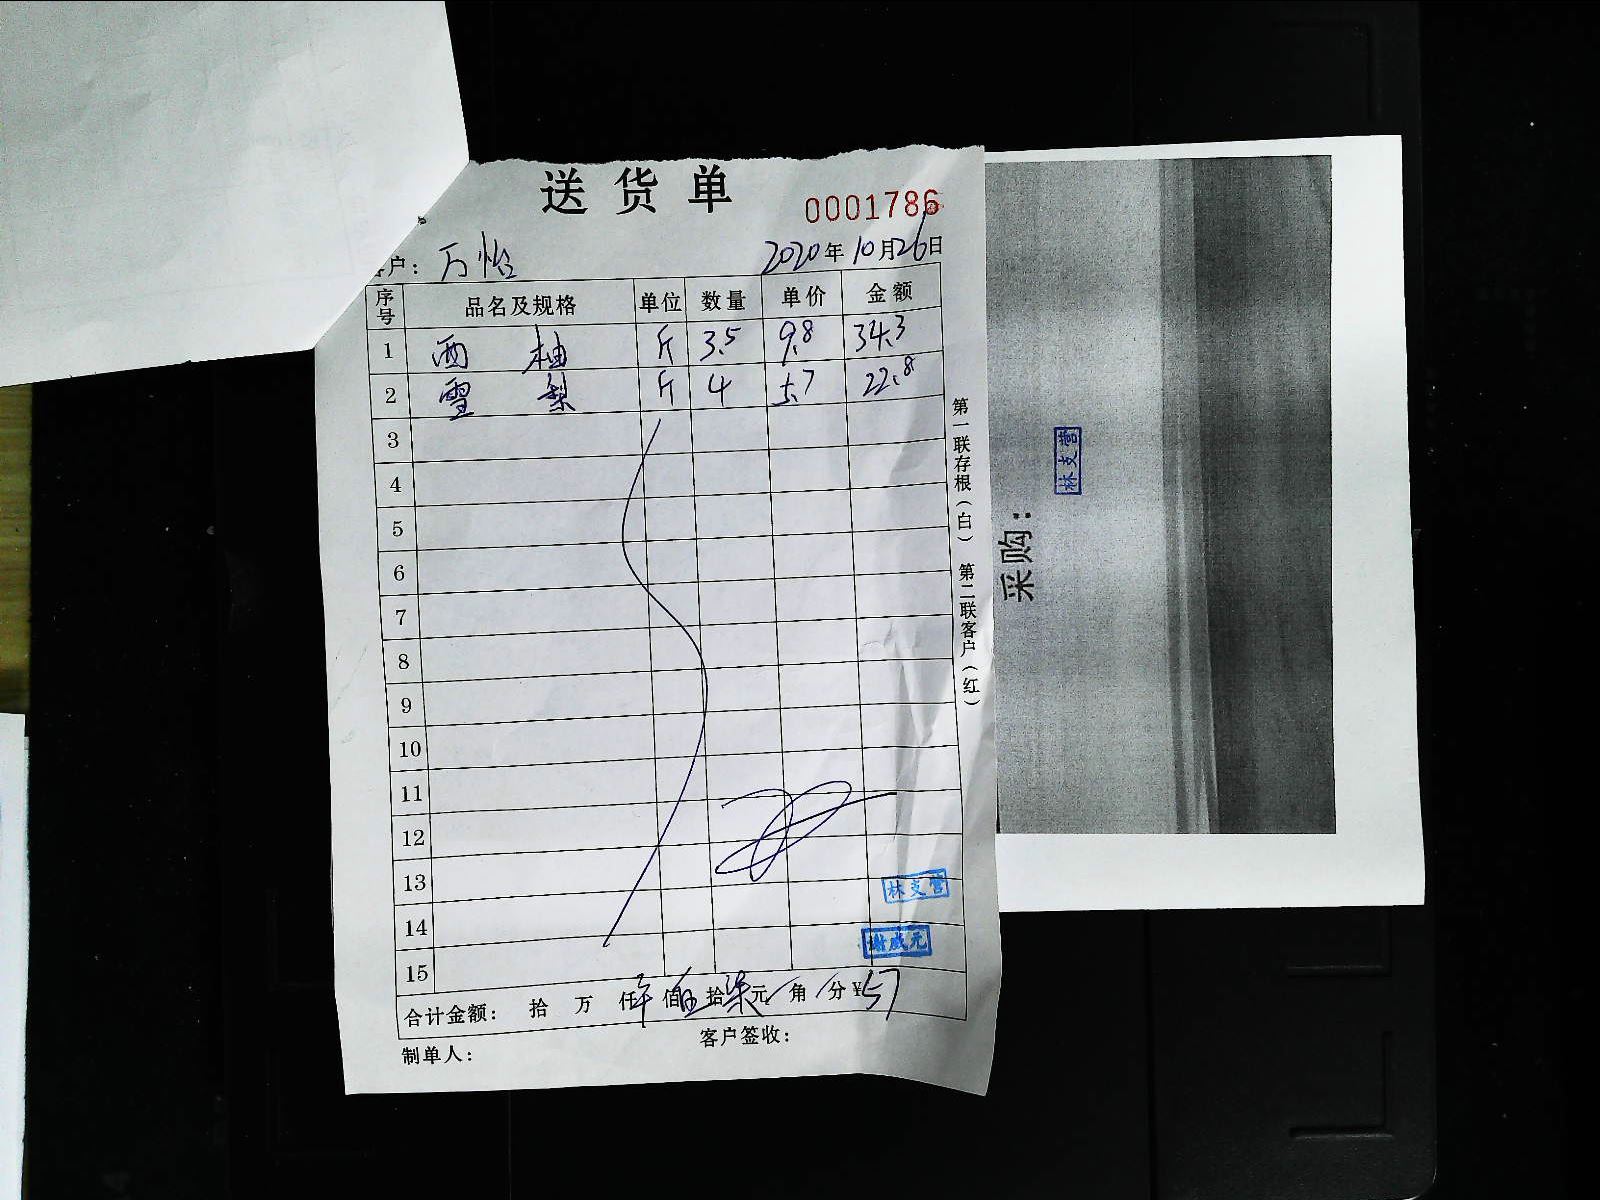 送货单
0001786
客户：万怡
2020年10月26日
序号 品名及规格 单位 数量 单价 金额
1 西柚 斤 3.5 9.8 34.3
2 雪梨 斤 4 5.7 22.8
3
4
5
6
7
8
9
10
11
12
13
14
15
林支营
谢成元
合计金额： 拾 万 仟 佰 伍 拾 柒 元 / 角 / 分 ¥57
制单人： 客户签收：
第一联存根（白） 第二联客户（红）
采购：
林支营